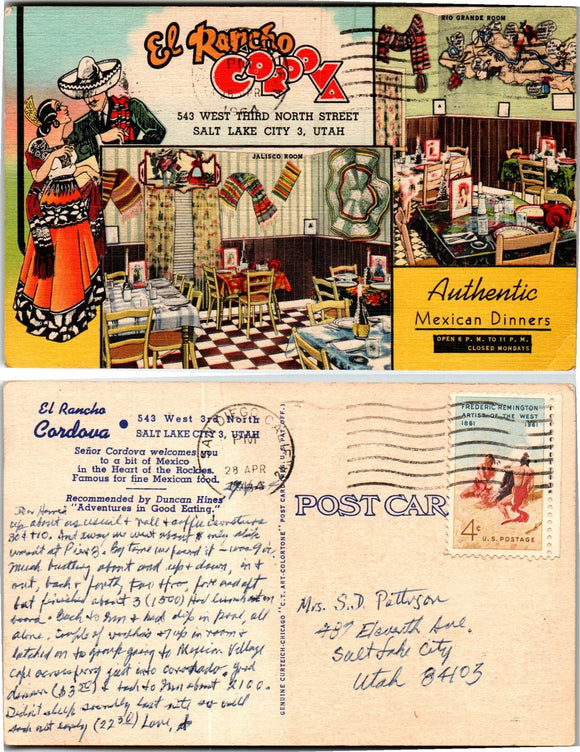 El Rancho
CORDOVA
543 WEST THIRD NORTH STREET
SALT LAKE CITY 3, UTAH
RIO GRANDE ROOM
JALISCO ROOM
Authentic
Mexican Dinners
OPEN 6 P. M. TO 11 P. M.
CLOSED MONDAYS
El Rancho
Cordova •
543 West 3rd North
SALT LAKE CITY 3, UTAH
Señor Cordova welcomes you
to a bit of Mexico
in the Heart of the Rockies.
Famous for fine Mexican food.
Recommended by Duncan Hines'
"Adventures in Good Eating."
SAN DIEGO CALIF
PM
28 APR
up about as usual & roll & coffee
30¢ + 10. And away we went about
at Pier 3. By time we found it
much bustling about and up & down, in &
out, back & forth, to & fro, for and aft
but finished about 3 (1500)
Back to Inn & had dip in pool, all
alone. Couple of up in room &
latched on to group going to Mexican Village
cafe across ferry just into Coronado. Good
dinner ($3.20) & back to Inn about 2100.
Didn't sleep soundly last nite so will
sack out early (2230) Love,
GENUINE CURTEICH-CHICAGO "C.T. ART-COLORTONE" POST CARD (REG. U.S. PAT. OFF.)
POST CAR
FREDERIC REMINGTON
ARTIST OF THE WEST
1861 1961
4¢
U.S. POSTAGE
Mrs. S.D. Patterson
787 Eleventh Ave.
Salt Lake City
Utah 84103